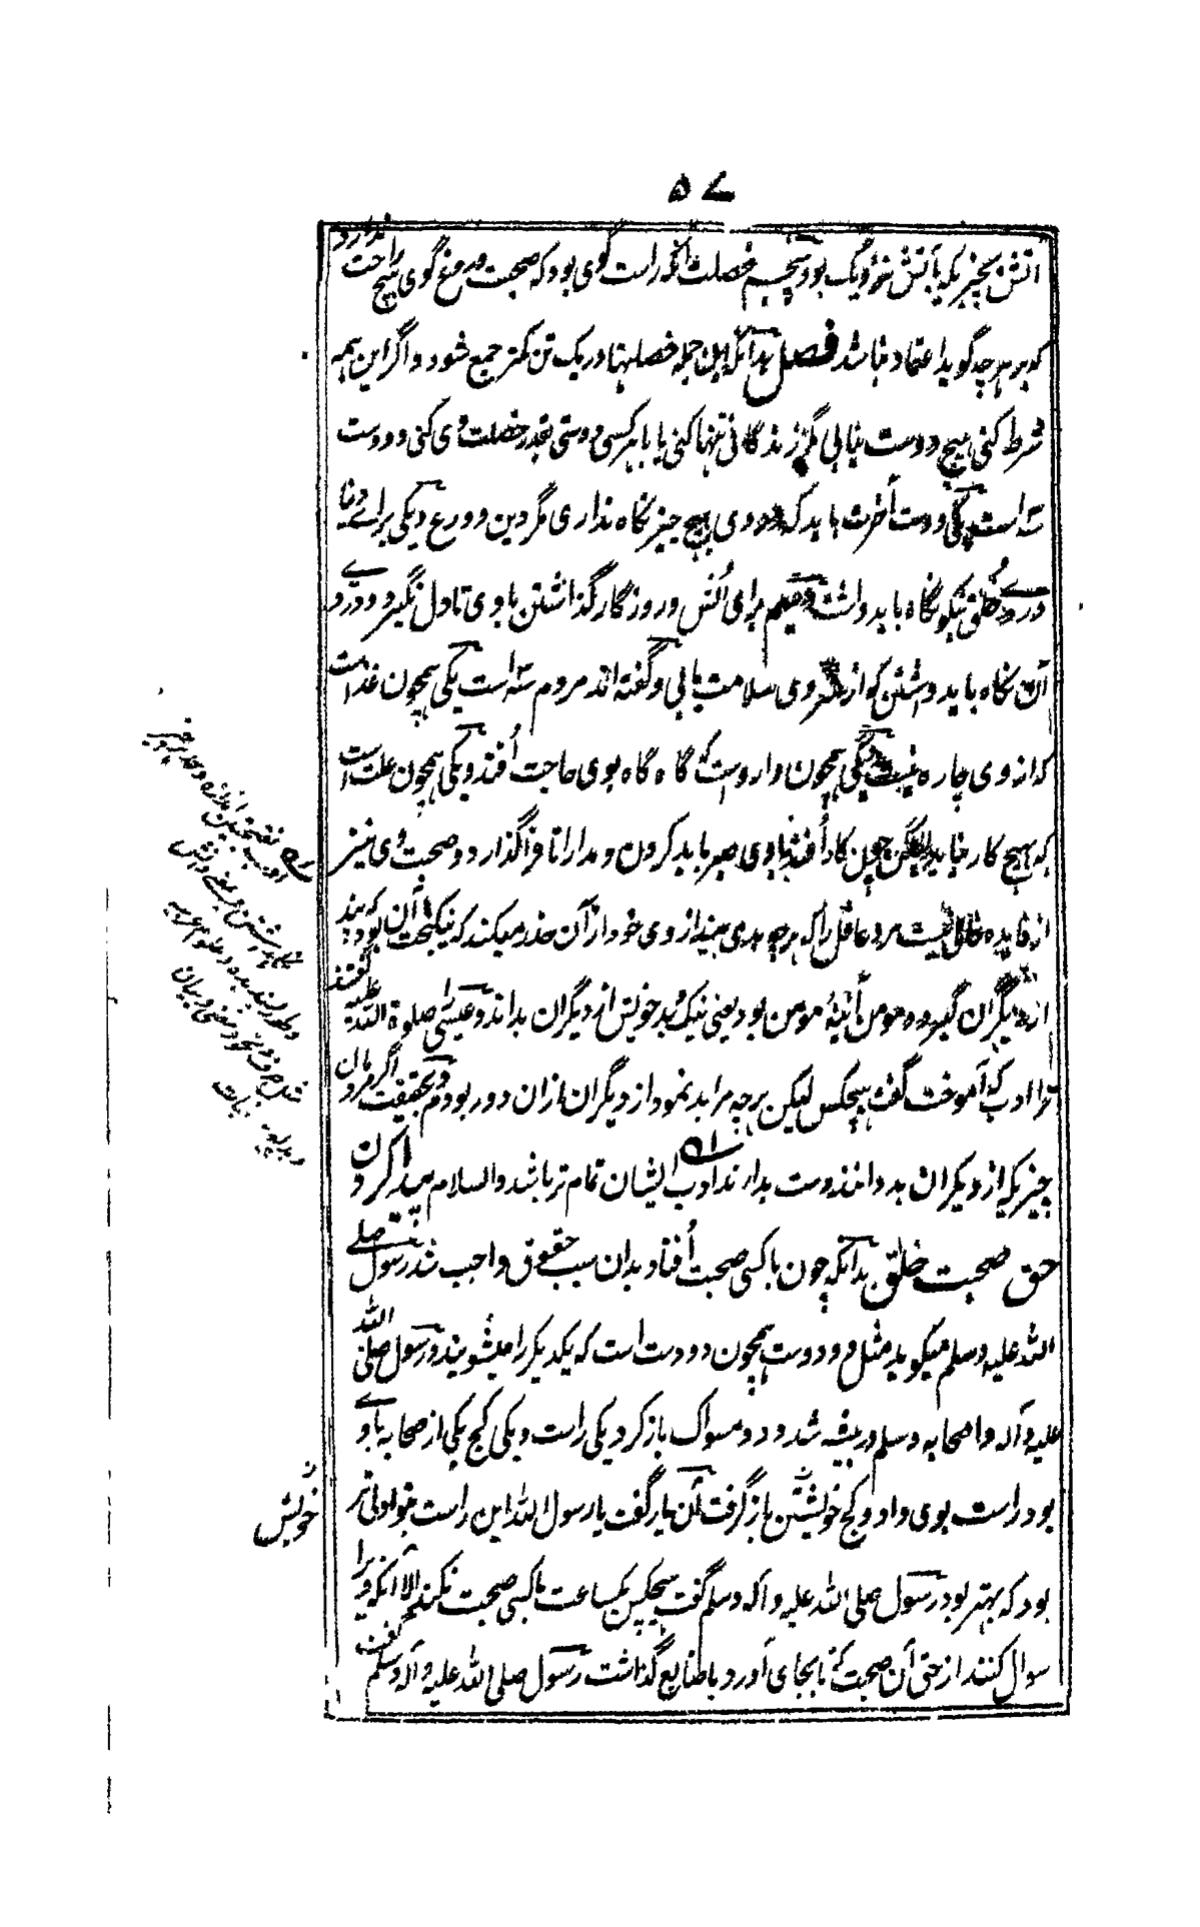 ۵۷
انش بچیزیکه بآتش نزدیک بود پنجم خصلت آنکه راست گوی بود که صحبت دروغ گوی هیچ راحت ندارد
که بر هرچه گوید اعتماد نباشد فصل بدانکه این جمله خصلتها در یک تن کمتر جمع شود و اگر این همه
شرط کنی هیچ دوست نیابی مگر زندگانی تنها کنی یا با هرکسی دوستی بقدر خصلت وی کنی و دوست
سه است یکی دوست آخرت باید که در وی هیچ چیز نگاه نداری مگر دین و ورع دیگی برائے دنیا
در وے خلق نیکو نگاه باید داشت و سیم برای انس و روزگار گذاشتن با وی تا دل نگیرد و در وے
آن نگاه باید داشتن که از وی سلامت یابی و گفته اند مردم سه است یکی همچون غذا است
که از وی چاره نیست و یکی همچون داروست که گاه گاه بوی حاجت افتد و یکی همچون علت است
که بهیچ کار نیاید لیکن چون کار افتد با وی صبر باید کردن و مدارا تا فرا گذارد و صحبت وی نیز
از فایده خالی نیست مرد عاقل را که هر چه بدی بیند از وی خود از آن حذر میکند که نیکبخت آن بود که پند
از دیگران گیرد و مومن آئینۀ مومن بود یعنی نیک و بد خویش از دیگران بداند و عیسی را صلوة الله علیه گفتند
ترا ادب که آموخت گفت هیچکس لیکن هرچه مرا بد نمود از دیگران از ان دور بودم و بحقیقت اگر مردمان
چیزیکه از دیگران بد دانند دوست بدارند ادب ایشان تمام تر باشد والسلام پیدا کردن
حق صحبت خلق بدانکه چون با کسی صحبت افتاد بدان سبب حقوق واجب شد رسول صلے
الله علیه وسلم میگوید مثل دو دوست همچون دو دست است که یکدیگر را میشویند و رسول صلی الله
علیه وآله واصحابه وسلم در بیشه شد و دو مسواک باز کرد یکی راست و یکی کج یکی از صحابه با وے
بود راست بوی داد و کج خویشتن باز گرفت آن یار گفت یا رسول الله این راست بتو اولی تر
بود که بهتر بود رسول صلی الله علیه وآله وسلم گفت هیچکس یکساعت با کسی صحبت نکند الا آنکه ویرا
سوال کنند از حق آن صحبت که تا بجای آورد یا ضایع گذاشت رسول صلی الله علیه وآله وسلم گفت
خویش